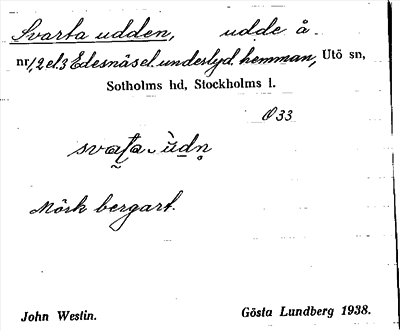 Svarta udden, udde å.
nr 1,2 el. 3 Edesnäs el. underlyd. hemman, Utö sn,
Sotholms hd, Stockholms l.
Ø 33
svaṯa ùdn̥
Mörk bergart.
John Westin. Gösta Lundberg 1938.